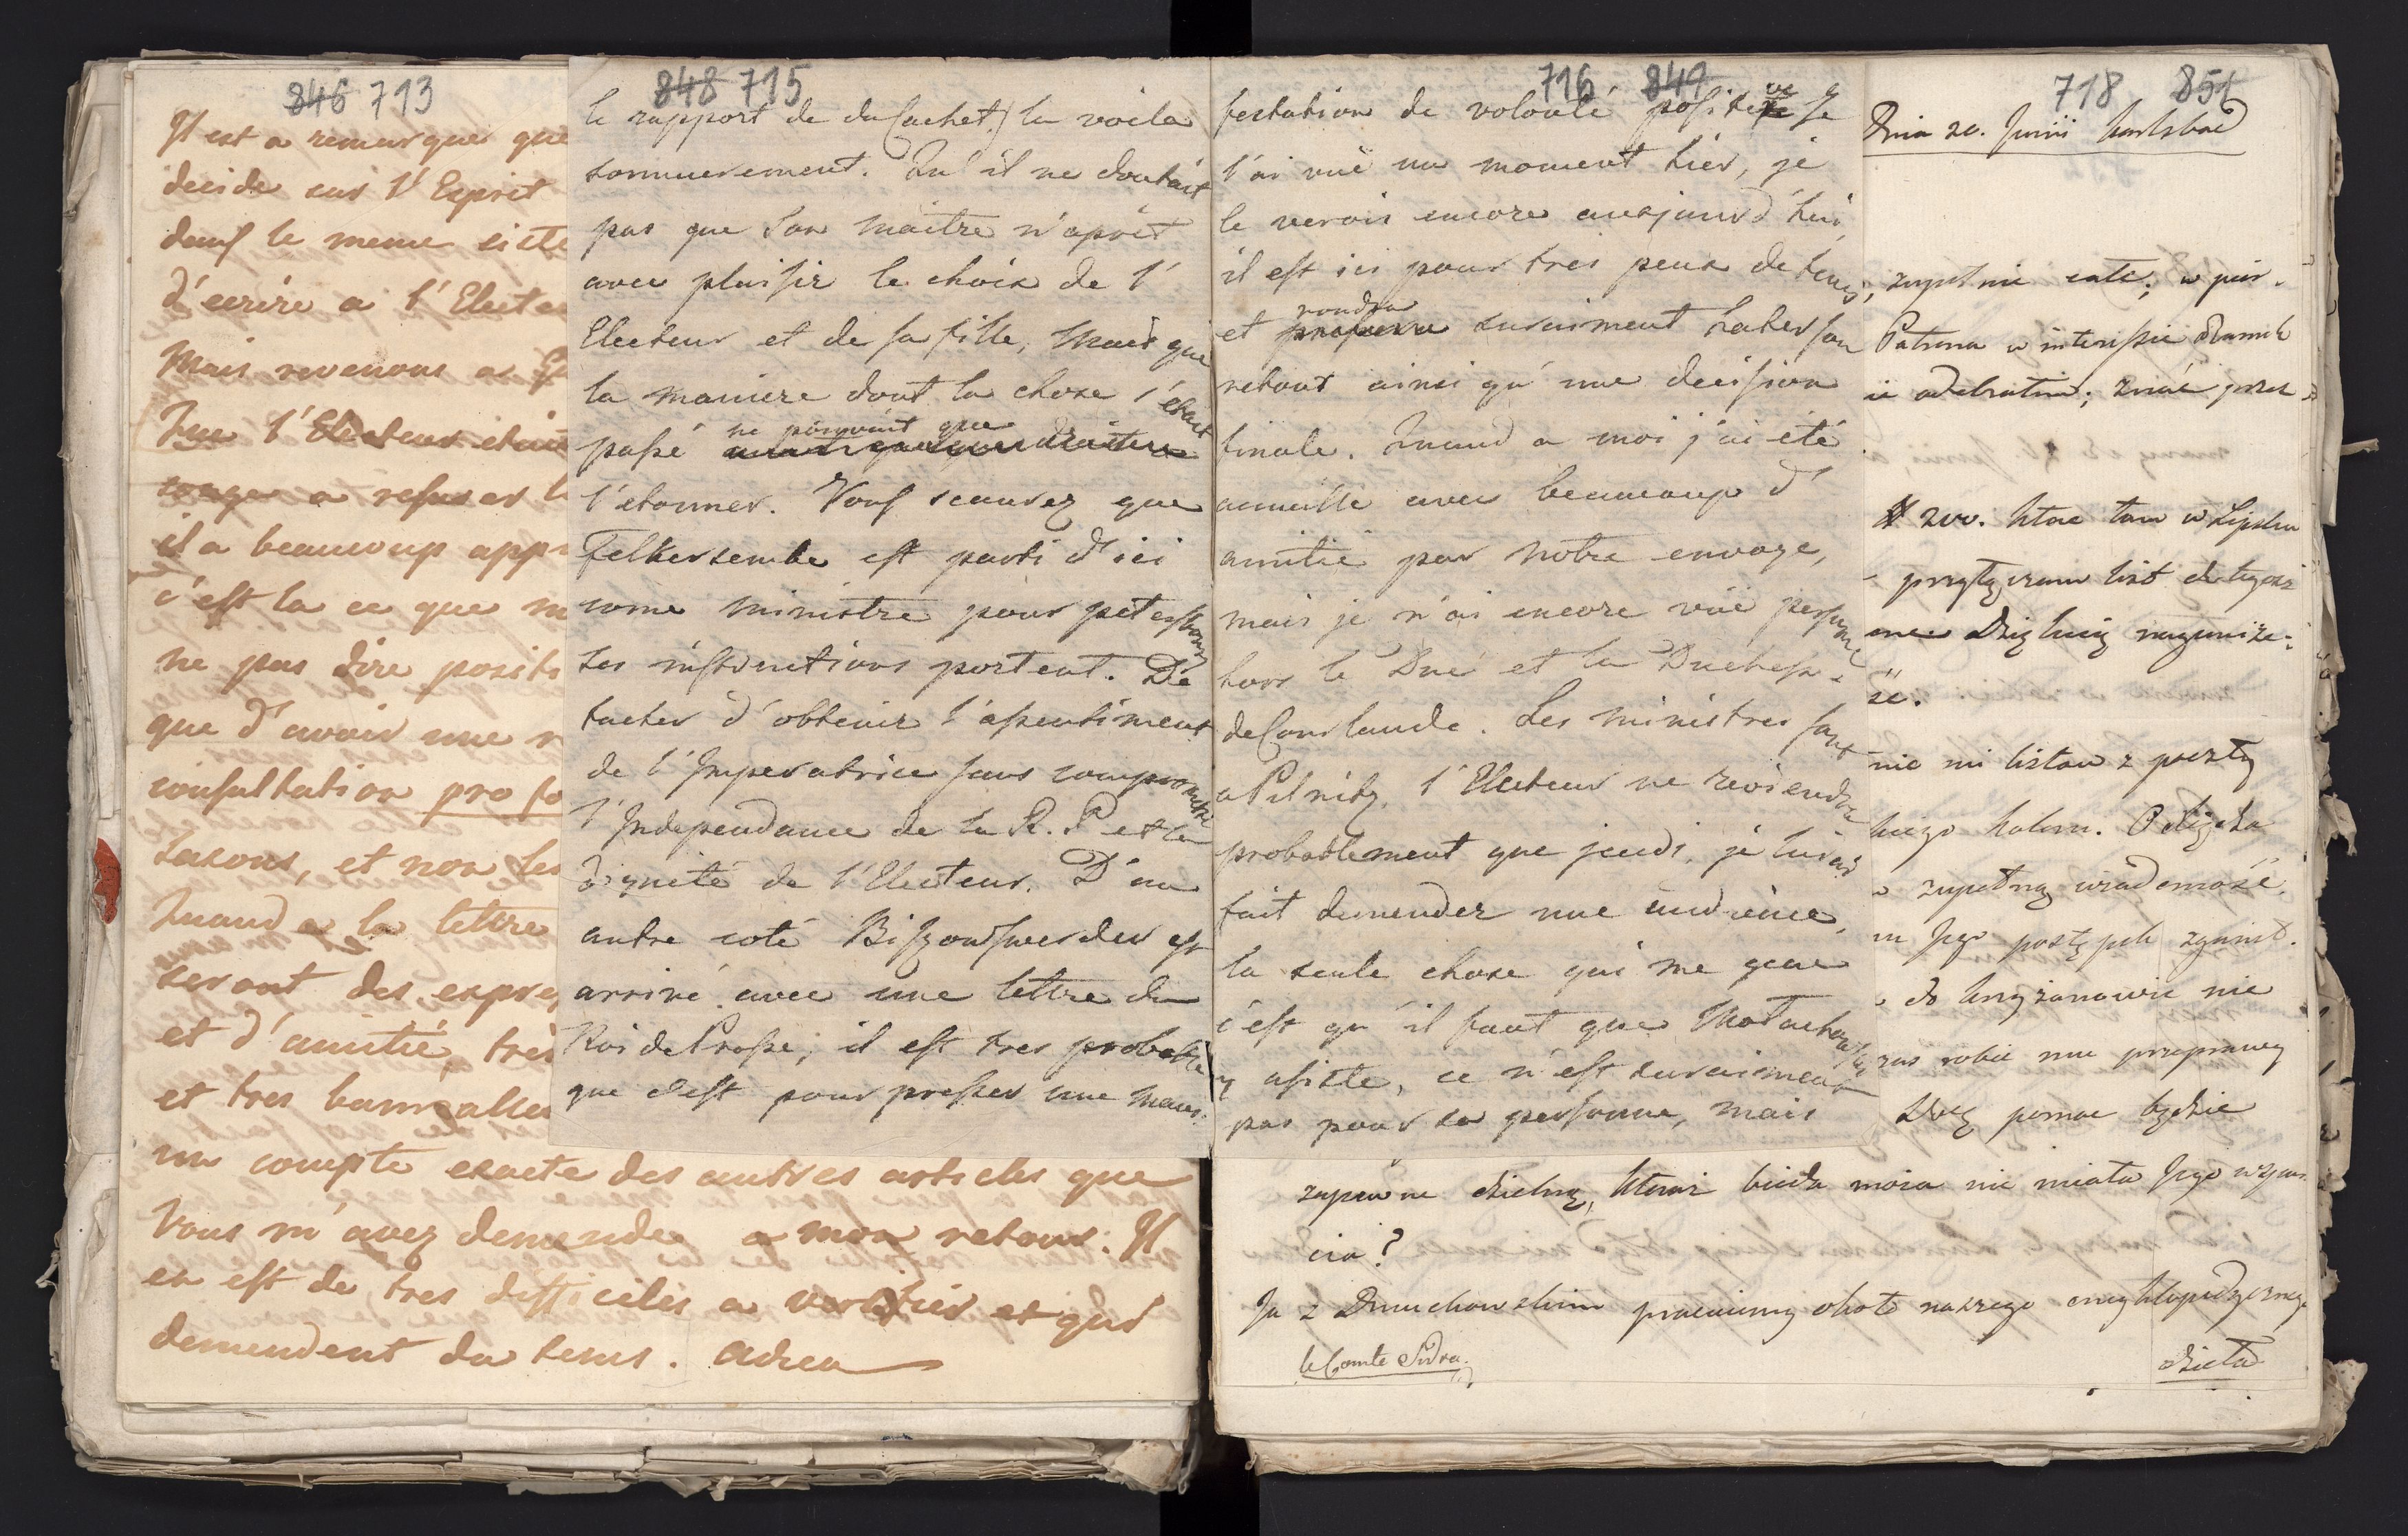 846 713
Il est a remarquer que
decide sur l'Esprit
dans le meme siste
d'ecrire a l'Electe
Mais revenons a
Que l'Electeur etait
a refuser l
il a beaucoup app
c'est la ce que m
ne pas dire positi
que d'avoir une r
consultation pro fo
Saxons, et non les
Quand a la lettre
seront des expre
et d'amitié, très
et tres bannalles
un compte exacte des autres articles que
Vous m'avez demendée a mon retour. Il
en est de tres difficiles a verifier et qui
demendent du tems. adieu
848 715
le rapport de du Cachet) la voila
sommerement. Qu'il ne doutait
pas que Son Maitre n'aprit
avec plaisir le choix de l'
Electeur et de sa fille, mais que
la maniere dont la chose s'était
passé ne pouvait que
l'etonner. Vous scaurez que
Felkersembe est parti d'ici
come Ministre pour petersbourg
Ses instructions portent. De
tacher d'obtenir l'assentiment
de l'Imperatrice sans compromettre
l'Independance de la R. P. et la
dignité de l'Electeur. D'un
autre coté Bischofswerder est
arrivé avec une lettre du
Roi de Prusse; il est tres probable
que c'est pour presser une mani-
716 849
festation de volonté positive Je
l'ai vuë un moment hier, je
le verois encore aujourd'hui,
il est ici pour tres peux de tems,
et voudra surement hater son
retour ainsi qu'une decission
finale. Quand a moi j'ai été
acueilli avec beaucoup d'
amitié par notre envoye,
mais je n'ai encore vuë personne
hors le Duc et la Duchesse
de Courlande. Les ministres sont
a Pilnitz, l'Electeur ne reviendra
probablement que jeudi, je lui ai
fait demender une audience,
la seule chose qui me gene
c'est qu'il faut que Małachowski
y assiste, ce n'est surement
pas pour sa personne, mais
718 851
Dnia 20. Junii Karlsbad
zupełnie cate; w
Patrona w interessie
ie odebratem; znać przez
# 200. ktore tam w Lipsku
przyłączam list do tegoż
Dziękuię nayuniże-
sé.
nie mi listow z poczty
kiego koloru. Odbiegła
zupełną wiadomość.
m Jego postępek zgani.
do Chryzanowie nie
ras robie mu przeprawy
Dwę pomoc będzie
zapewne dzielną, ktoraż bieda moia nie miała Jego wspar-
cia?
Ja z Dmuchowskim pracuiemy okoto naszego encyklopedycznego
le Comte Sidra. dzieła